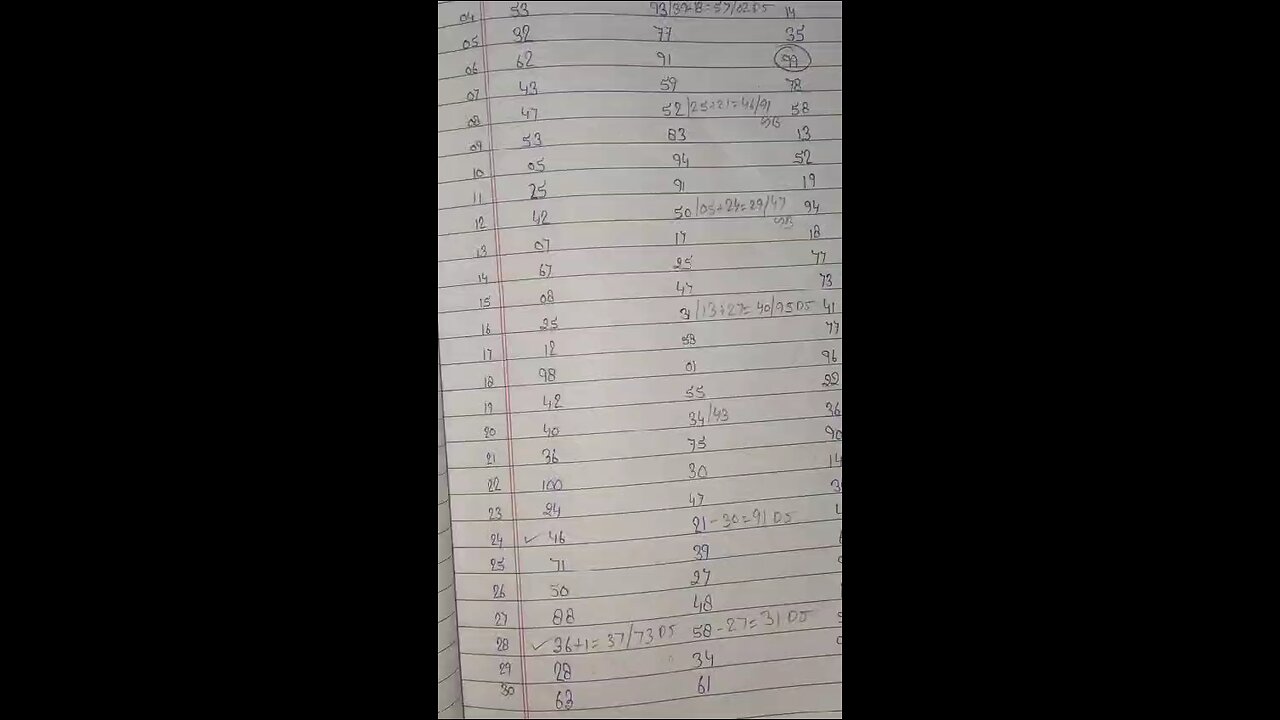 04 53 93/39+18=57/02DS 14
05 32 77 35
06 62 91 99
07 43 59 78
08 47 52/25+21=46/91 58
SG
09 53 83 13
10 05 94 52
11 25 91 19
12 42 50/05+24=29/47 94
SG
13 07 17 18
14 67 25 77
15 08 47 73
16 25 31/13+27=40/95DS 41
17 12 53 77
18 98 01 96
19 42 55 22
20 40 34/43 36
21 36 75 90
22 100 30 14
23 24 47 3
24 ✓ 46 21-30=91DS
25 71 39
26 50 27
27 88 48
28 ✓ 36+1=37/73DS 58-27=31DS
29 28 34
30 63 61